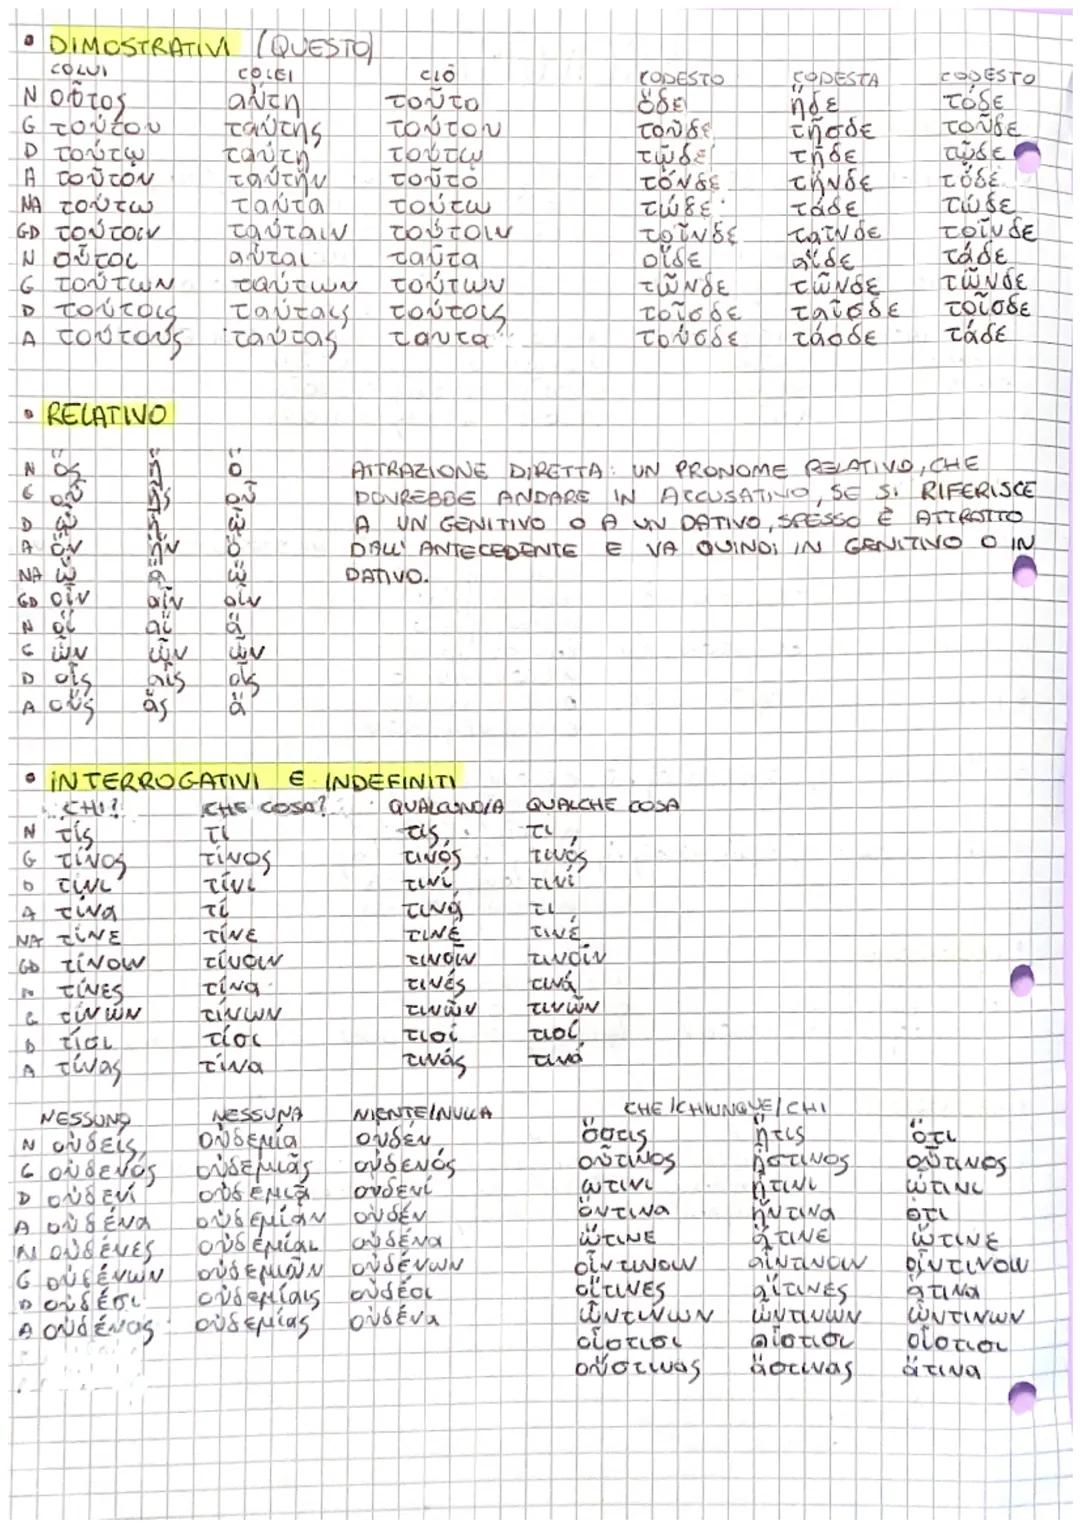 • DIMOSTRATIVI (QUESTO)
COLUI COLEI CIÒ CODESTO CODESTA CODESTO
N οὗτος αὕτη τοῦτο ὅδε ἥδε τόδε
G τούτου ταύτης τούτου τοῦδε τῆσδε τοῦδε
D τούτῳ ταύτῃ τούτῳ τῷδε τῇδε τῷδε
A τοῦτον ταύτην τοῦτο τόνδε τήνδε τόδε
NA τούτω ταύτα τούτω τώδε τάδε τώδε
GD τούτοιν ταύταιν τούτοιν τοῖνδε ταῖνδε τοῖνδε
N οὗτοι αὗται ταῦτα οἵδε αἵδε τάδε
G τούτων ταύτων τούτων τῶνδε τῶνδε τῶνδε
D τούτοις ταύταις τούτοις τοῖσδε ταῖσδε τοῖσδε
A τούτους ταύτας ταυτα τούσδε τάσδε τάδε
• RELATIVO
N ὅς ἥ ὅ ATTRAZIONE DIRETTA: UN PRONOME RELATIVO, CHE
G οὗ ἧς οὗ DOVREBBE ANDARE IN ACCUSATIVO, SE SI RIFERISCE
D ᾧ ᾗ ᾧ A UN GENITIVO O A UN DATIVO, SPESSO È ATTRATTO
A ὅν ἥν ὅ DALL' ANTECEDENTE E VA QUINDI IN GENITIVO O IN
NA ὥ ἅ ὥ DATIVO.
GD οἷν αἷν οἷν
N οἵ αἵ ἅ
G ὧν ὧν ὧν
D οἷς αἷς οἷς
A οὕς ἅς ἅ
• INTERROGATIVI E INDEFINITI
CHI? CHE COSA? QUALCUNO/A QUALCHE COSA
N τίς τί τις τι
G τίνος τίνος τινός τινός
D τίνι τίνι τινί τινί
A τίνα τί τινά τι
NA τίνε τίνε τινέ τινέ
GD τίνοιν τίνοιν τινοῖν τινοῖν
N τίνες τίνα τινές τινά
G τίνων τίνων τινῶν τινῶν
D τίσι τίσι τισί τισί
A τίνας τίνα τινάς τινά
NESSUNO NESSUNA NIENTE/NULLA CHE/CHIUNQUE/CHI
N οὐδείς οὐδεμία οὐδέν ὅστις ἥτις ὅτι
G οὐδενός οὐδεμιᾶς οὐδενός οὗτινος ἧστινος οὗτινος
D οὐδενί οὐδεμιᾷ οὐδενί ᾧτινι ᾗτινι ᾧτινι
A οὐδένα οὐδεμίαν οὐδέν ὅντινα ἥντινα ὅτι
N οὐδένες οὐδεμίαι οὐδένα ὥτινε ἅτινε ὥτινε
G οὐδένων οὐδεμιῶν οὐδένων οἷντινοιν αἷντινοιν οἷντινοιν
D οὐδέσι οὐδεμίαις οὐδέσι οἵτινες αἵτινες ἅτινα
A οὐδένας οὐδεμίας οὐδένα ὧντινων ὧντινων ὧντινων
οἷστισι αἷστισι οἷστισι
οὕστινας ἅστινας ἅτινα